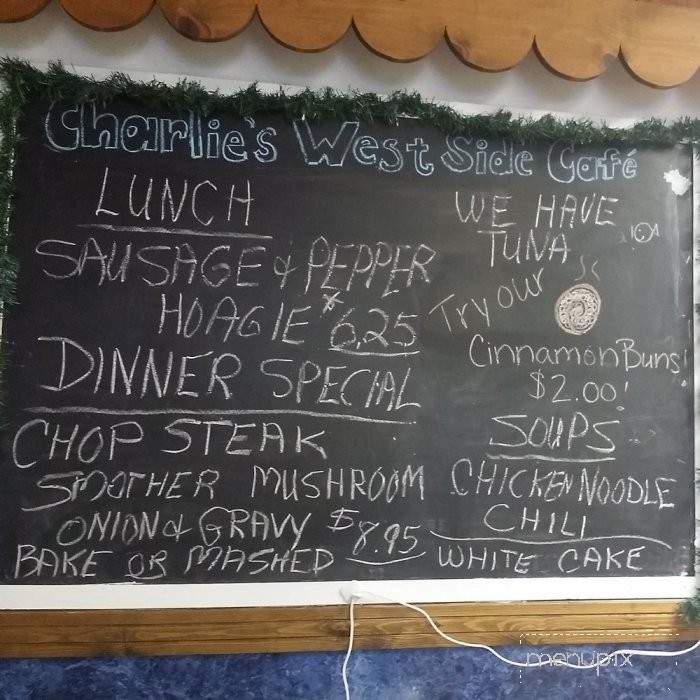 Charlie's West Side Café
LUNCH
SAUSAGE & PEPPER
HOAGIE * 6.25
DINNER SPECIAL
CHOP STEAK
SMOTHER MUSHROOM
ONION & GRAVY $8.95
BAKE OR MASHED
WE HAVE
TUNA
Try our
Cinnamon Buns!
$2.00!
SOUPS
CHICKEN NOODLE
CHILI
WHITE CAKE
menupix